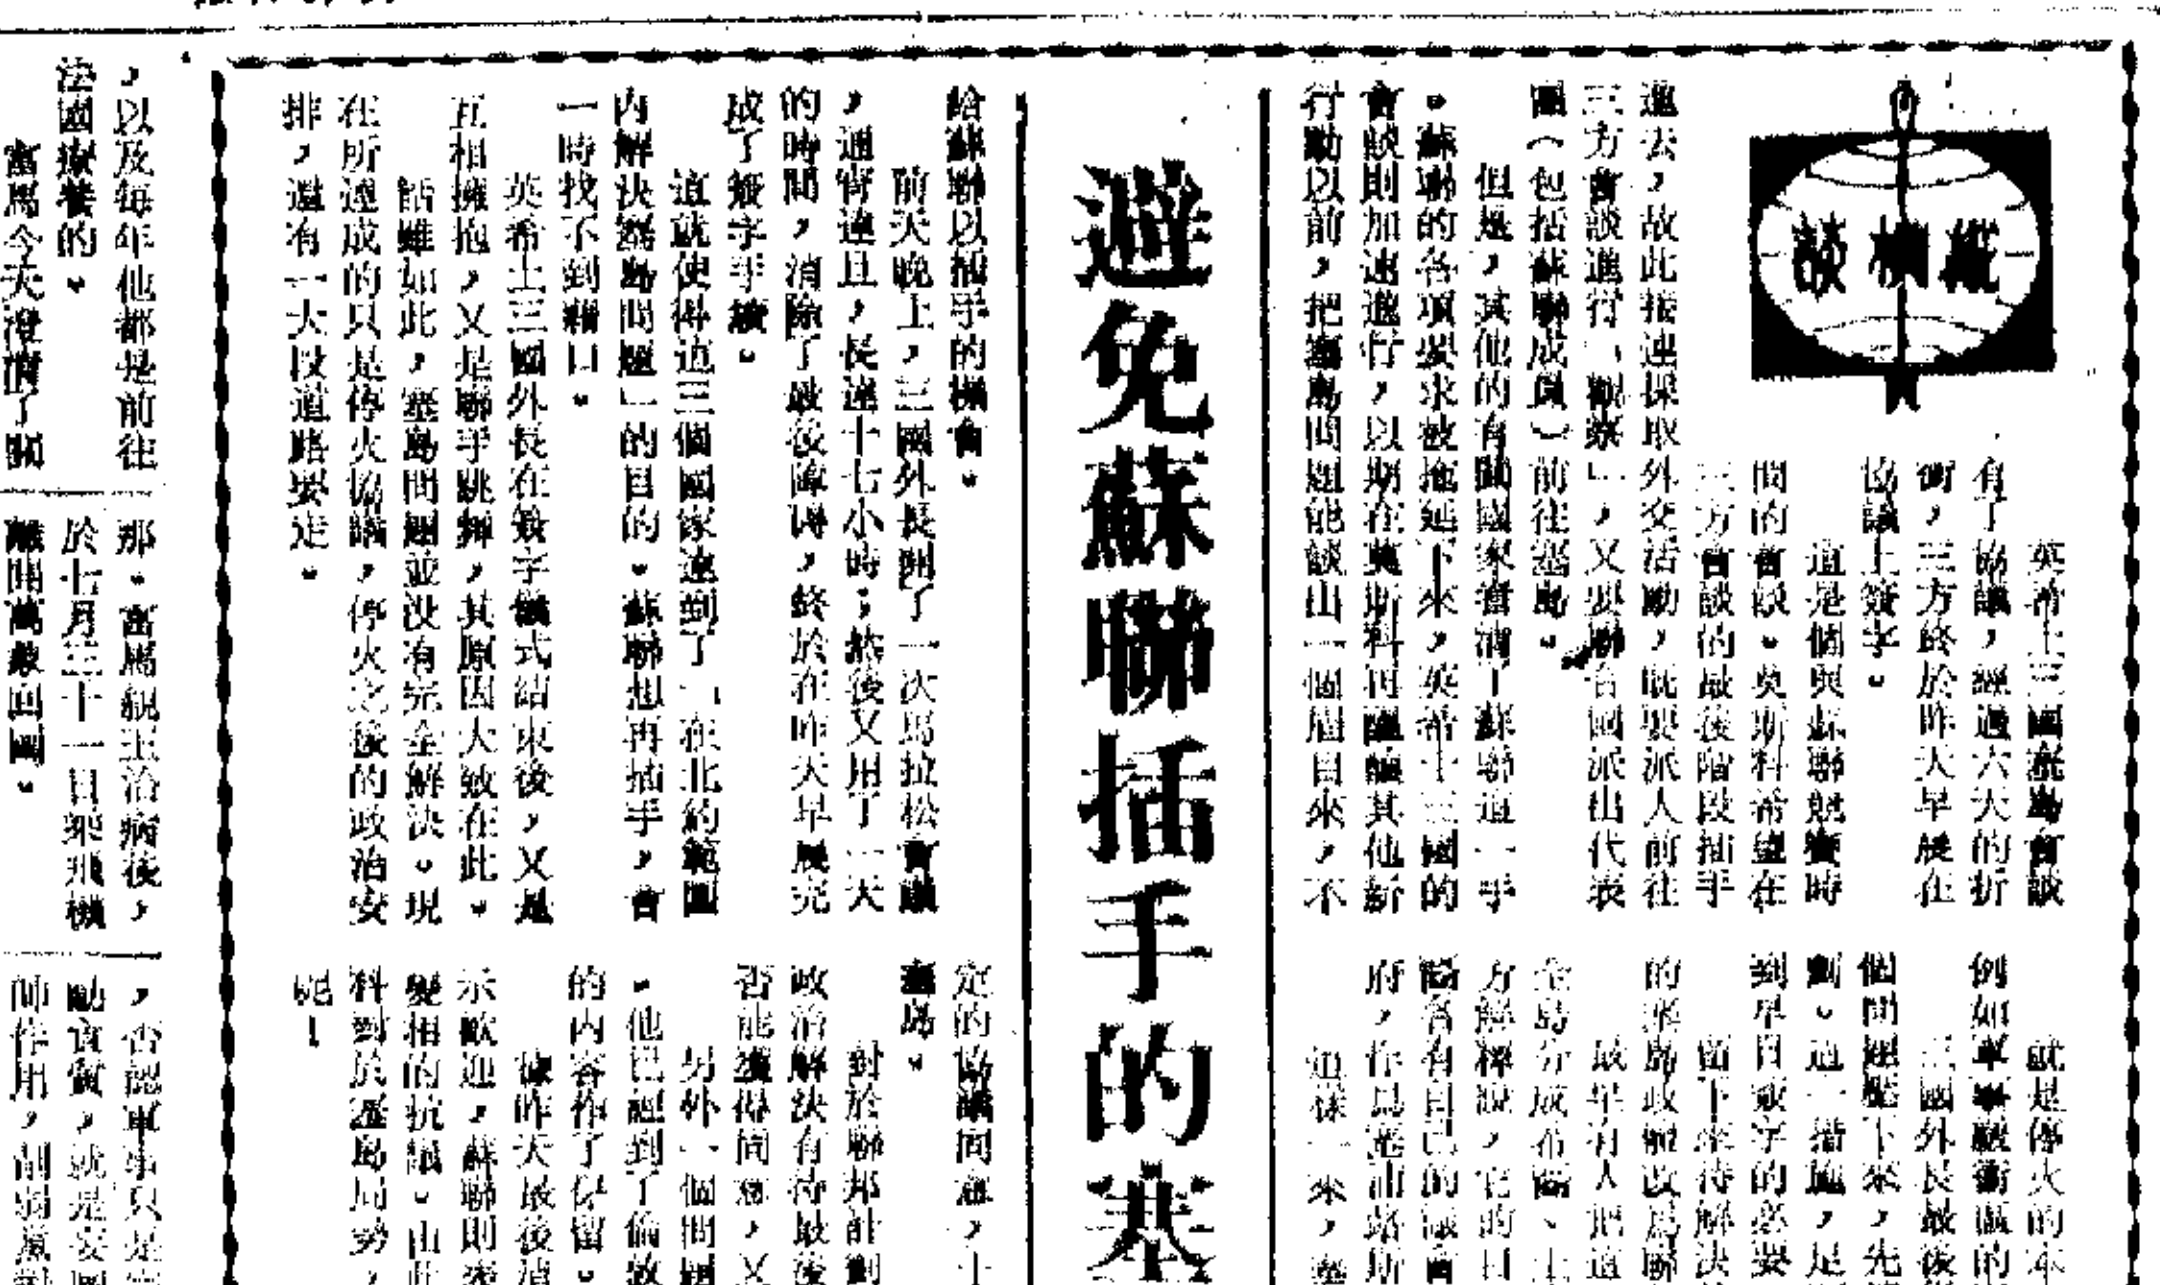 縱橫談
避免蘇聯插手的塞
英希土三國塞島會談
有了協議，經過六天的折
衝，三方終於昨天早晨在
協議上簽字。
這是個與蘇聯競賽時
間的會談。莫斯科希望在
三方會談的最後階段插手
進去，故此接連採取外交活動，既要派人前往
三方會談進行「觀察」，又要聯合國派出代表
團（包括蘇聯成員）前往塞島。
但是，其他的有關國家看清了蘇聯這一手
。蘇聯的各項要求被拖延下來，英希土三國的
會談則加速進行，以期在莫斯科再醞釀其他新
行動以前，把塞島問題能談出一個眉目來，不
給蘇聯以插手的機會。
前天晚上，三國外長開了一次馬拉松會議
，通宵達旦，長達十七小時；然後又用了一天
的時間，消除了最後障礙，終於在昨天早晨完
成了簽字手續。
這就使得這三個國家達到了「在北約範圍
內解決塞島問題」的目的。蘇聯想再插手，會
一時找不到藉口。
英希土三國外長在簽字儀式結束後，又是
互相擁抱，又是聯手跳舞，其原因大致在此。
話雖如此，塞島問題並沒有完全解決。現
在所達成的只是停火協議，停火之後的政治安
排，還有一大段道路要走。
就是停火的本
例如軍事緩衝區的
三國外長最後
個問題壓下來，先
劃。這一措施，是
到早日簽字的必要
留下來待解決
的塞島政體改爲聯
最早有人把這
全島分成希區、土
方解釋說，它的目
區各有自己的議會
府，作爲塞浦路斯
這樣一來，塞
定的協議同意，土
塞島。
對於聯邦計劃
政治解決有待最後
否能獲得同意，又
另外一個問題
。他已經到了倫敦
的內容作了保留。
據昨天最後消
示歡迎，蘇聯則表
變相的抗議。由此
料到於塞島局勢，
呢！
，以及每年他都是前往
法國療養的。
富馬今天澄清了關
那。富馬親王治病後，
於七月三十一日乘飛機
離開萬象回國。
，否認軍事只是
動實質，就是安圖
師作用，削弱